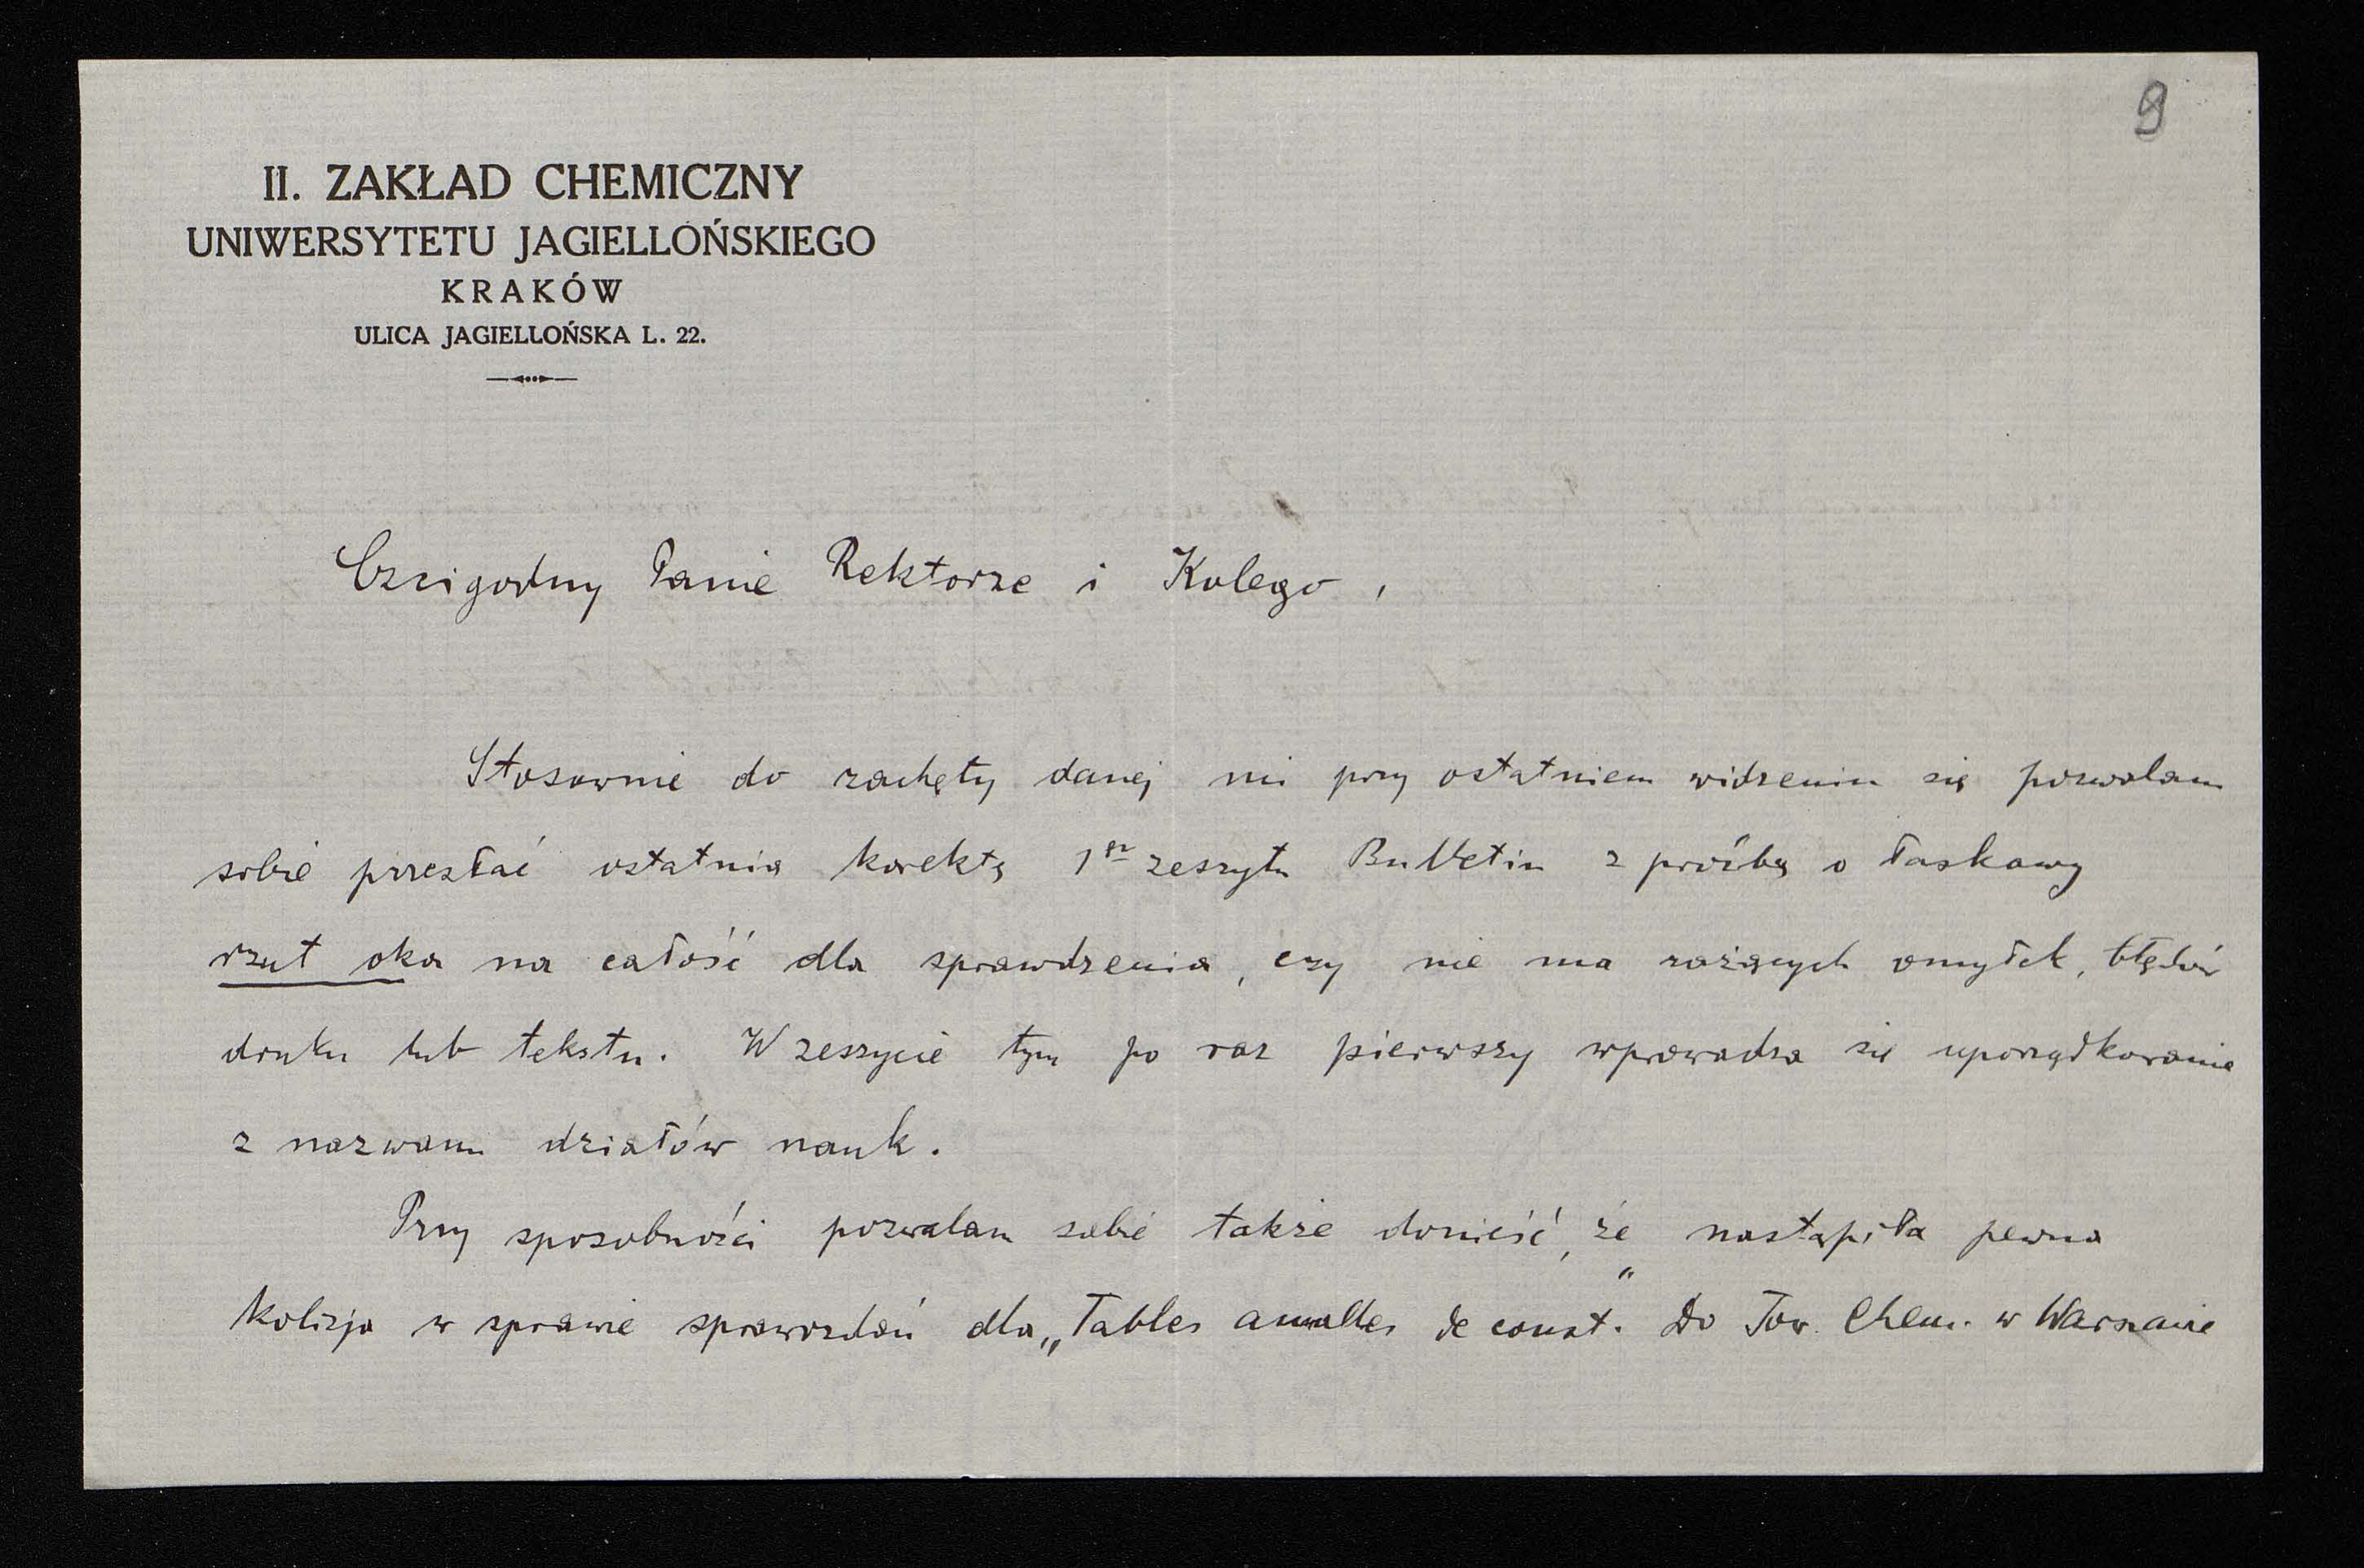 9
II. ZAKŁAD CHEMICZNY
UNIWERSYTETU JAGIELLOŃSKIEGO
KRAKÓW
ULICA JAGIELLOŃSKA L. 22.
Czcigodny Panie Rektorze i Kolego,
Stosownie do zachęty danej mi przy ostatniem widzeniu się pozwalam
sobie przesłać ostatnią korektę 1go zeszytu Bulletin z prośbą o łaskawy
rzut oka na całość dla sprawdzenia, czy nie ma rażących omyłek, błędów
druku lub tekstu. W zeszycie tym po raz pierwszy wprowadza się uporządkowanie
z nazwami działów nauk.
Przy sposobności pozwalam sobie także donieść, że nastąpiła pewna
kolizja w sprawie sprawozdań dla „Tables annuelles de const." Do Tow. Chem. w Warszawie